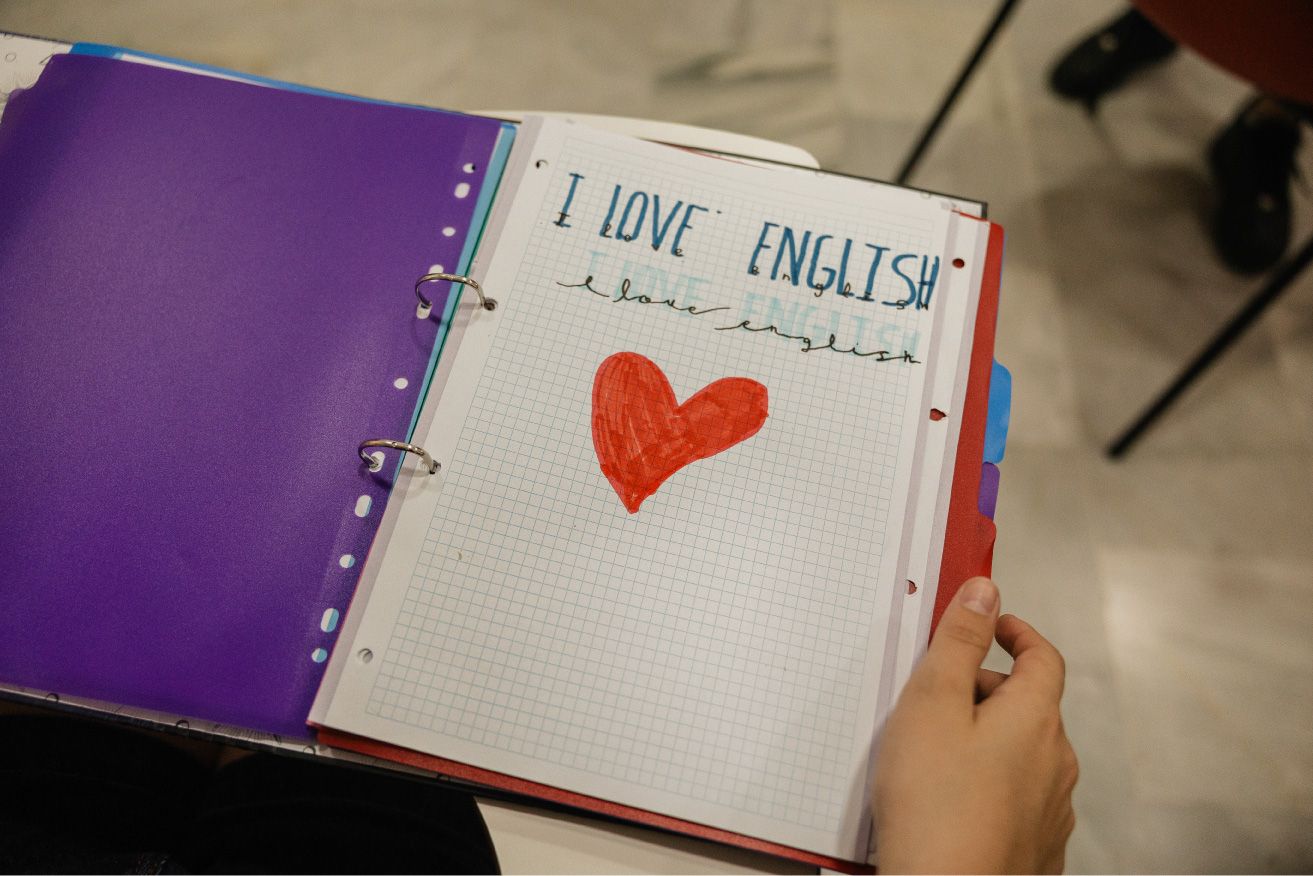 I LOVE ENGLISH
I love english
I LOVE ENGLISH
I love english